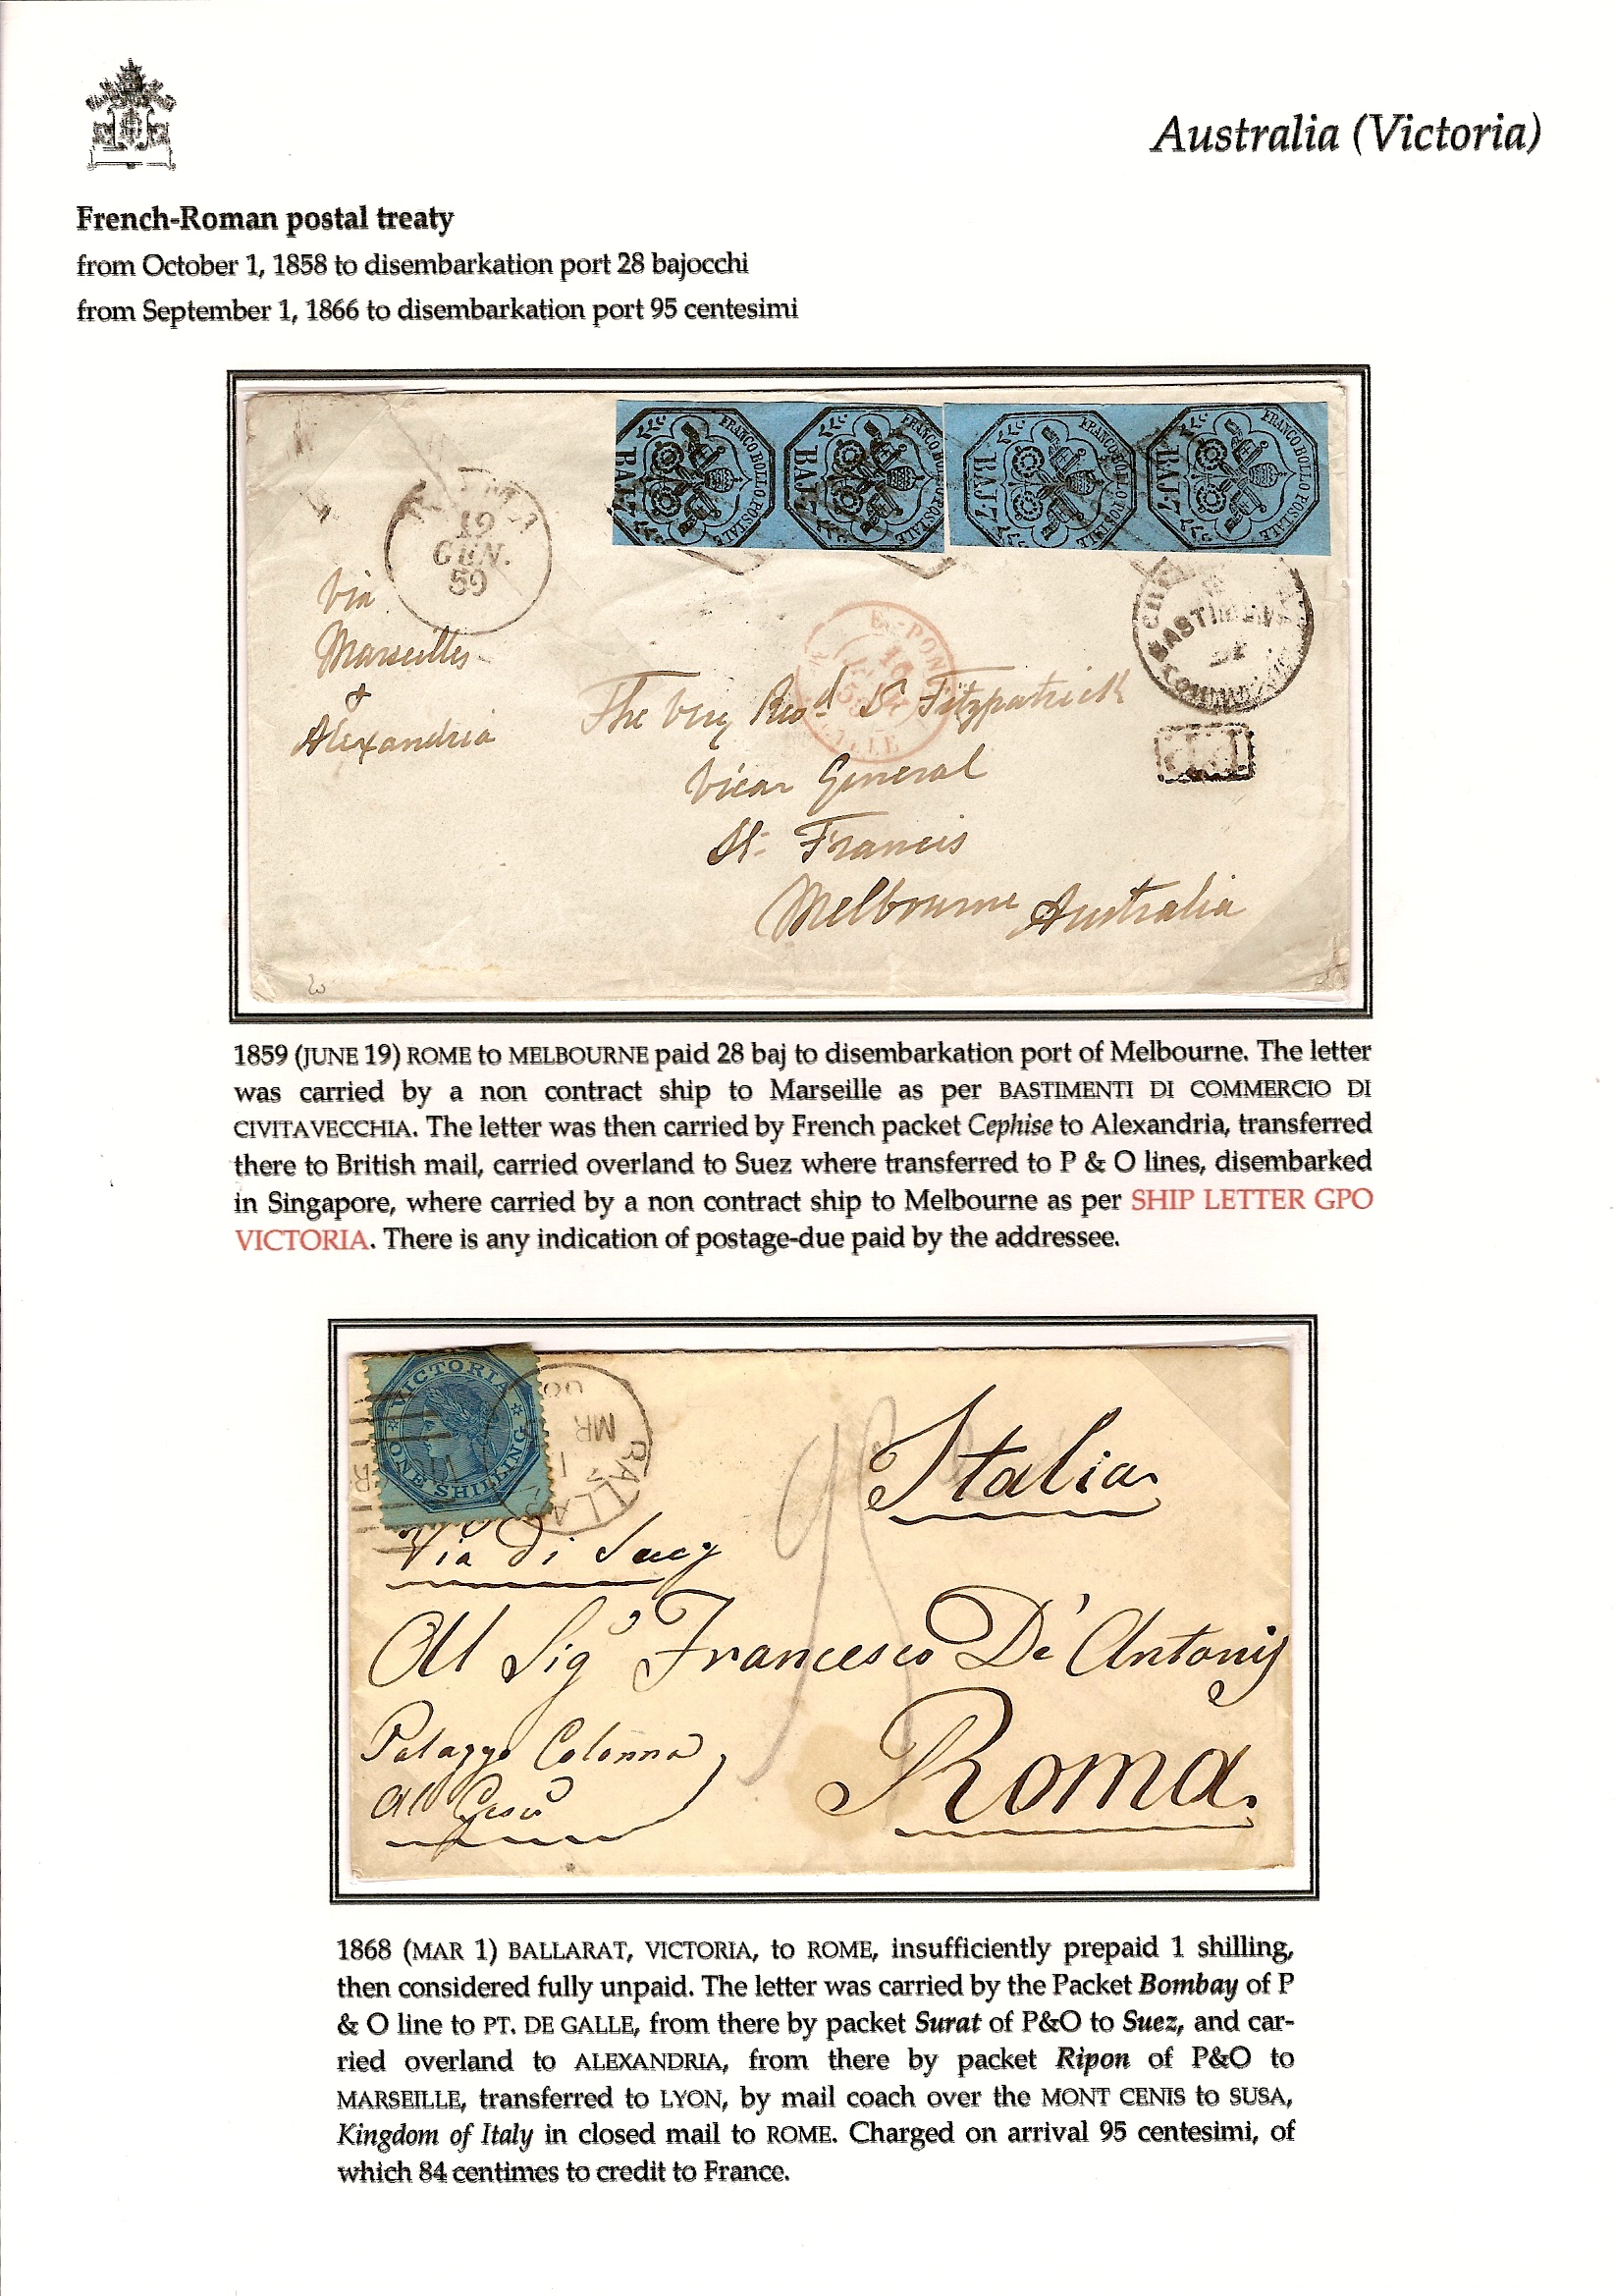 Australia (Victoria)
French-Roman postal treaty
from October 1, 1858 to disembarkation port 28 bajocchi
from September 1, 1866 to disembarkation port 95 centesimi
FRANCO BOLLO POSTALE
BAJ 7
FRANCO BOLLO POSTALE
BAJ 7
FRANCO BOLLO POSTALE
BAJ 7
FRANCO BOLLO POSTALE
BAJ 7
19
GEN.
59
via
Marseilles
&
Alexandria
BASTIMEN
DI
The Very Revd Dr Fitzpatrick
Vicar General
St. Francis
Melbourne Australia
1859 (JUNE 19) ROME to MELBOURNE paid 28 baj to disembarkation port of Melbourne. The letter
was carried by a non contract ship to Marseille as per BASTIMENTI DI COMMERCIO DI
CIVITAVECCHIA. The letter was then carried by French packet Cephise to Alexandria, transferred
there to British mail, carried overland to Suez where transferred to P & O lines, disembarked
in Singapore, where carried by a non contract ship to Melbourne as per SHIP LETTER GPO
VICTORIA. There is any indication of postage-due paid by the addressee.
VICTORIA
ONE SHILLING
BALLA
MR
1
95
Italia
Via di Suez
Al Sigr Francesco De' Antonis
Palazzo Colonna
Al Gesù
Roma.
1868 (MAR 1) BALLARAT, VICTORIA, to ROME, insufficiently prepaid 1 shilling,
then considered fully unpaid. The letter was carried by the Packet Bombay of P
& O line to PT. DE GALLE, from there by packet Surat of P&O to Suez, and car-
ried overland to ALEXANDRIA, from there by packet Ripon of P&O to
MARSEILLE, transferred to LYON, by mail coach over the MONT CENIS to SUSA,
Kingdom of Italy in closed mail to ROME. Charged on arrival 95 centesimi, of
which 84 centimes to credit to France.